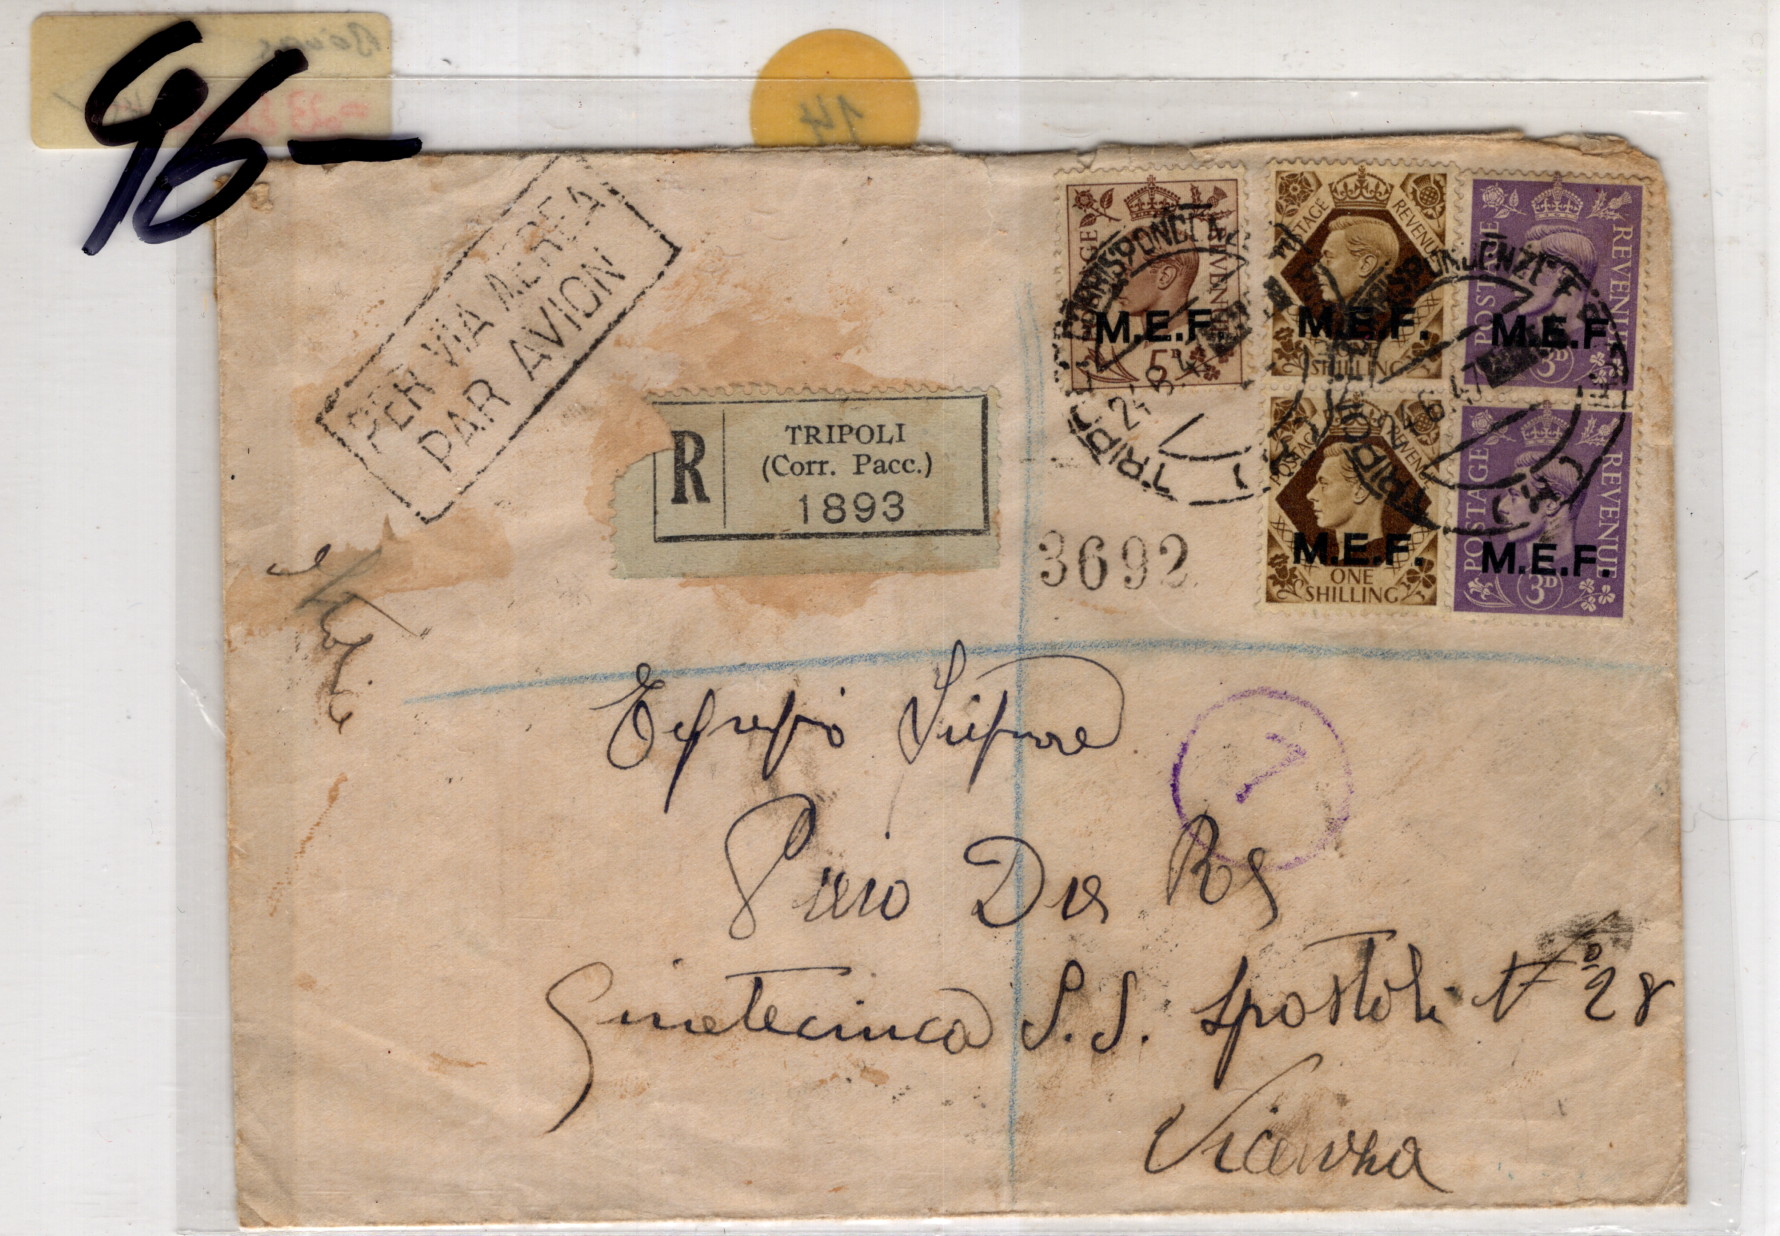 96-
14
PER VIA AEREA
PAR AVION
R
TRIPOLI
(Corr. Pacc.)
1893
3692
POSTAGE REVENUE
M.E.F.
5D
POSTAGE REVENUE
M.E.F.
SHILLING
POSTAGE REVENUE
M.E.F.
3D
POSTAGE REVENUE
M.E.F.
ONE
SHILLING
POSTAGE REVENUE
M.E.F.
3D
TRIPOLI
CORRISPONDENZE
7
Egregio Signore
Piero Da Re
S.S. Apostoli No 28
Vicenza